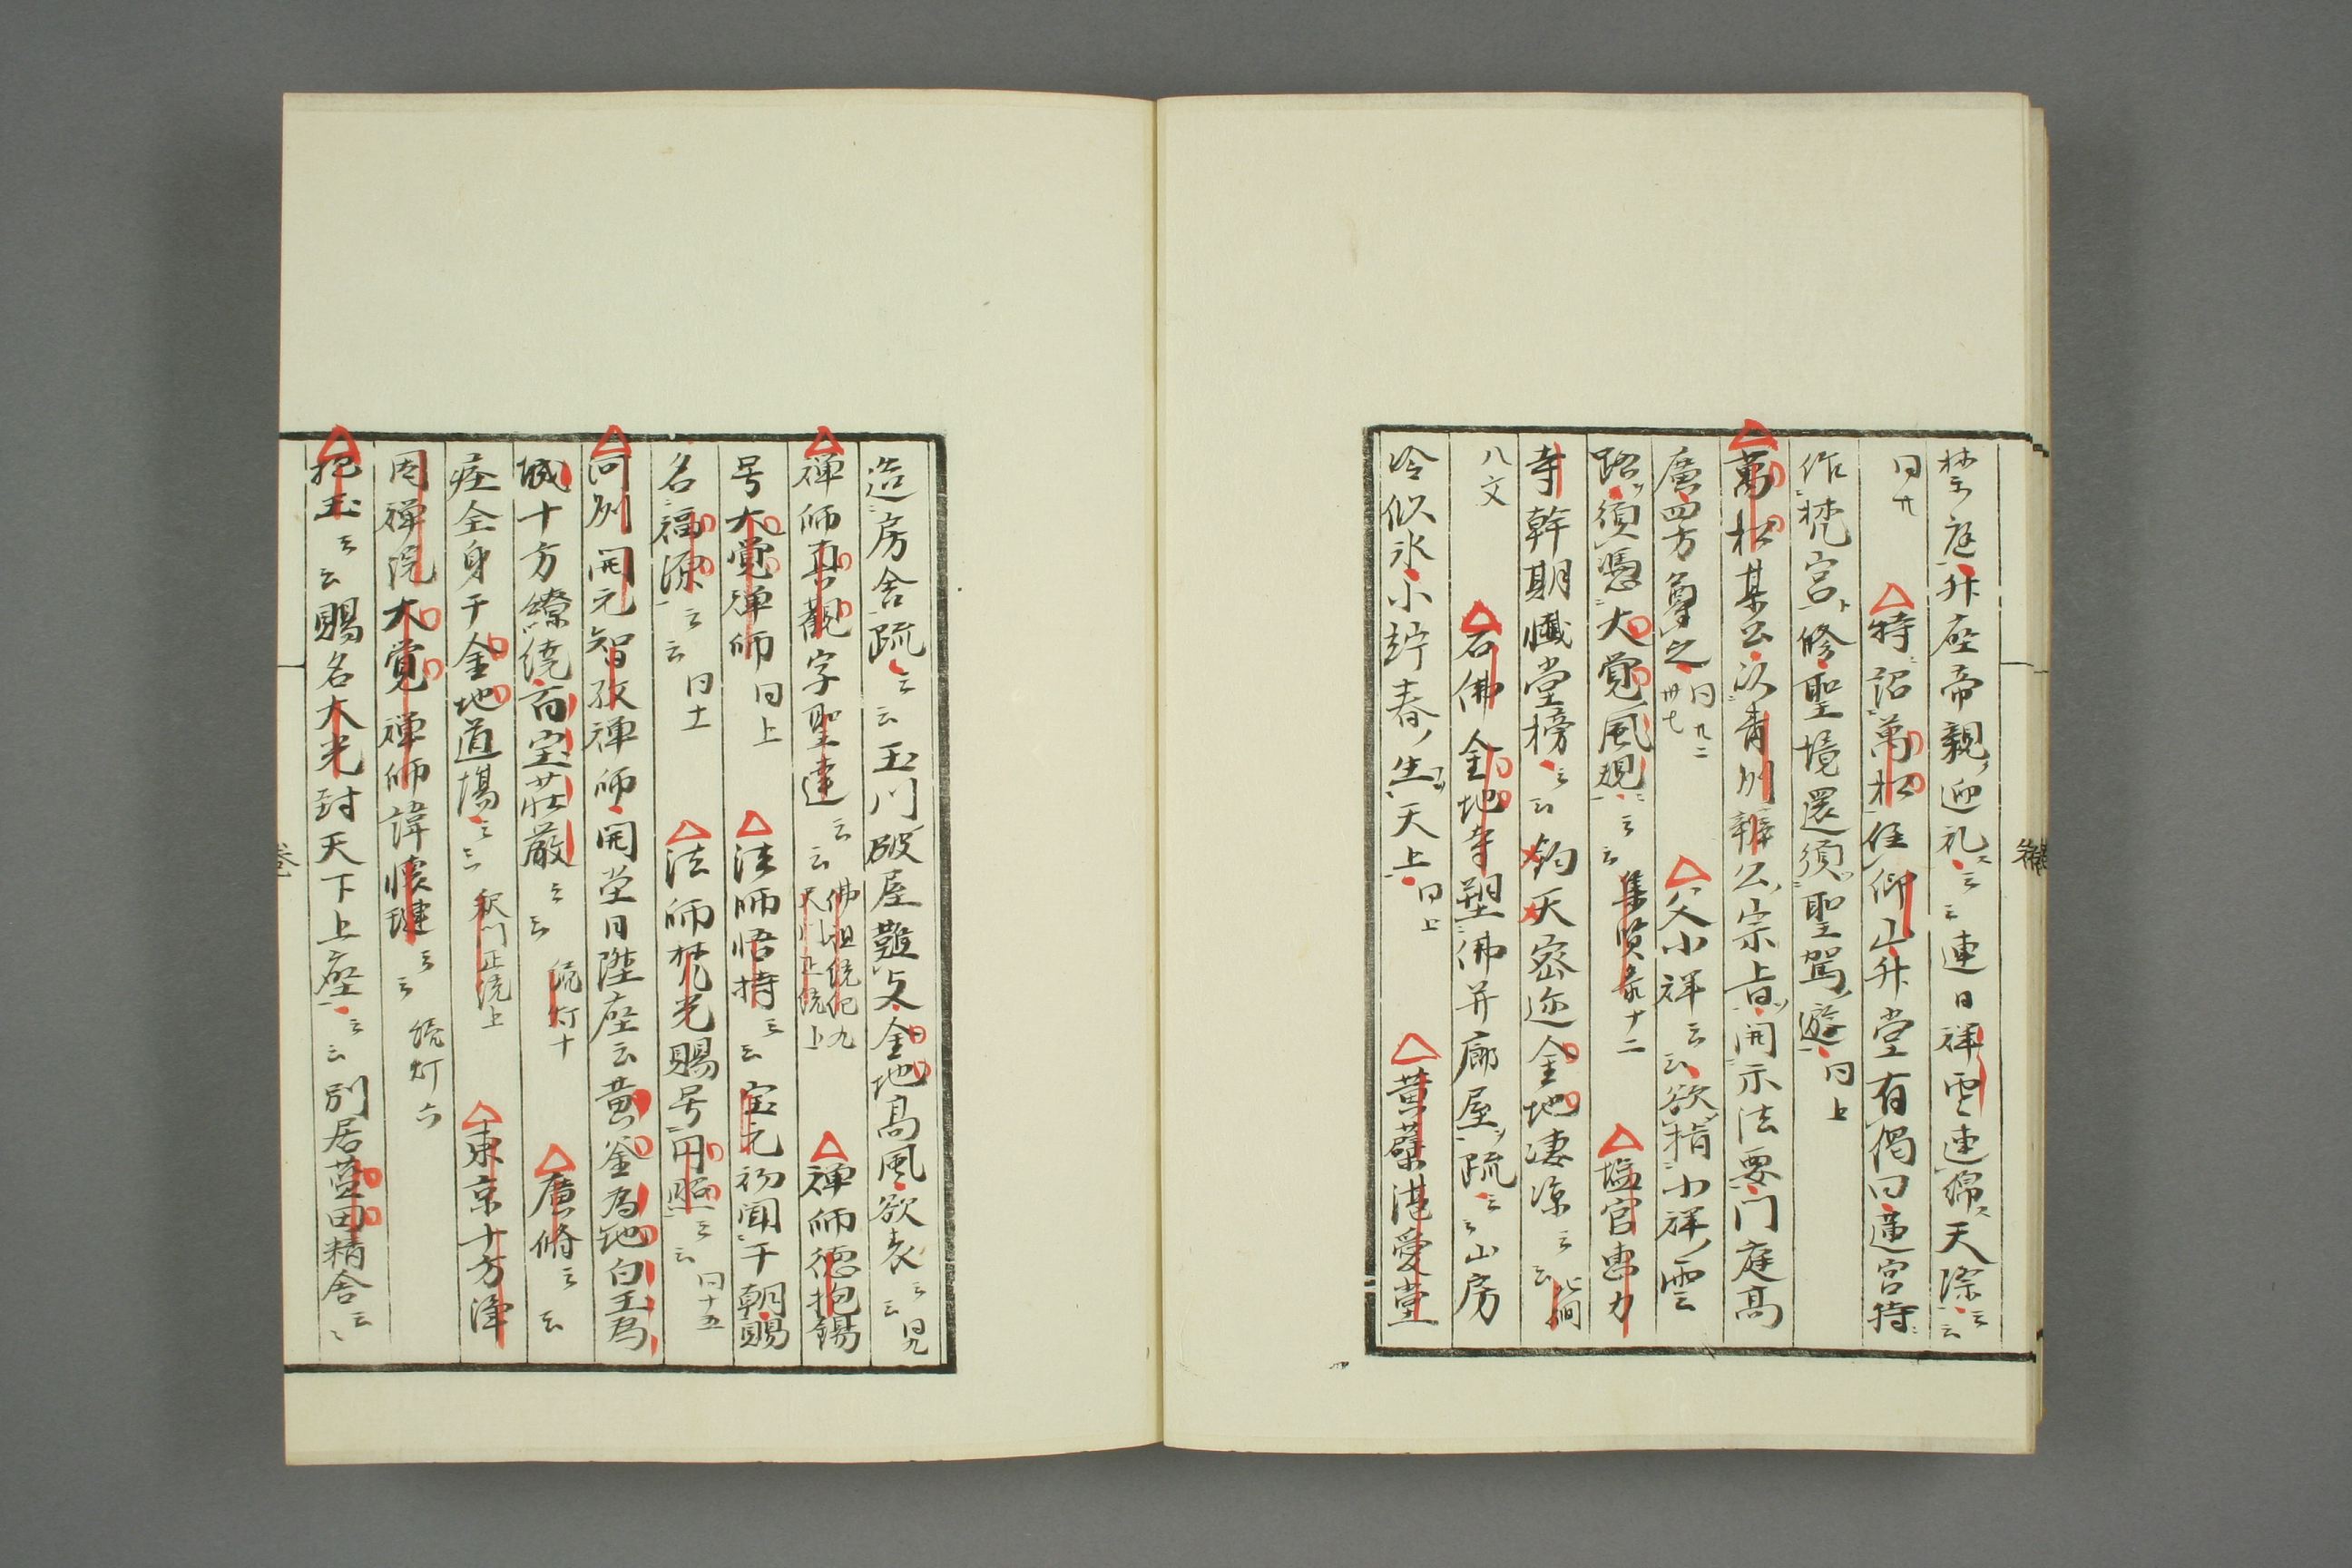 禁庭升座帝親迎礼云云連日祥雲連綿天際云云
同廿 特詔萬松住仰山升堂有偈曰蓮宮特
作梵宮修聖境還須聖駕遊同上
萬松某公以青州辨公宗旨開示法要門庭高
廣四方尊之同九二卅七 父小祥云云欲指小祥雲
路須憑大覚風規云云 集贤录十二 塩官恵力
寺幹期懺堂榜云云 钧天密迩金地凄凉云云北磵
八文 石佛金地寺塑佛并廊屋疏云云山房
冷似氷小紵春生天上同上 黄蘗港愛堂
造房舎疏云云玉川破屋難文金地高風欲表云云
禅師真觀字聖達云云佛祖統紀九 釈門正統上 禅師徳抱錫
号大覚禅師同上 法師悟持云云宝元初聞于朝賜
名福源云云同十一 法師梵光賜号円照云云同十五
河州開元智孜禅師開堂日陞座云黄金為地白玉為
城十方繚繞百宝莊嚴云云続灯十 廣脩云云
痊全身于金地道場云云 釈門正統上 東京十方浄
因禅院大覚禅師諱懐璉云云続灯六
抱玉云云賜名大光封天下上座云云別居藍田精舎云云